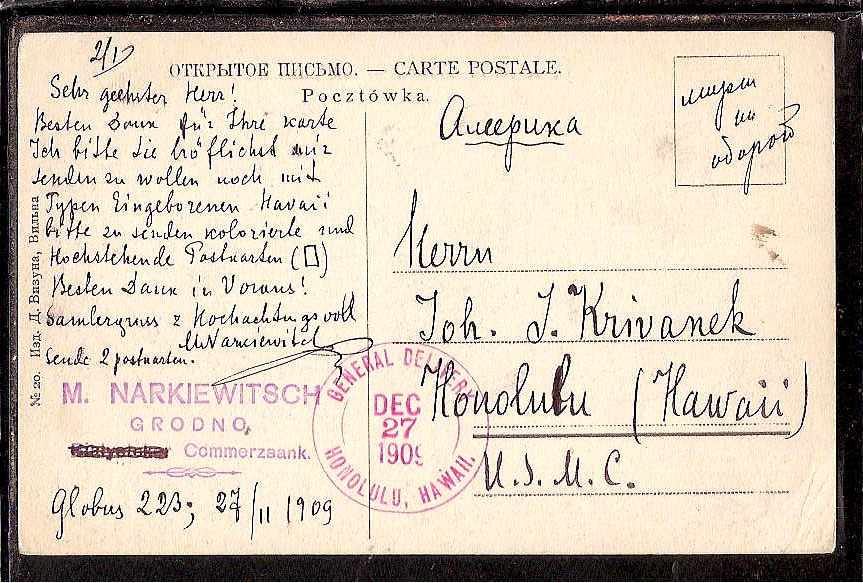 ОТКРЫТОЕ ПИСЬМО. — CARTE POSTALE.
Pocztówka.
Sehr geehrter Herr!
Besten Dank für Ihre Karte
Ich bitte Sie höflichst mir
senden zu wollen noch mit
Typen Eingeborenen Havaii
bitte zu senden kolorierte und
Hochstehende Postkarten (▯)
Besten Dank in Voraus!
Samlergruss z Hochachtungsvoll
MNarkiewitsch
Sende 2 postkarten.
M. NARKIEWITSCH
GRODNO,
Commerzbank.
Globus 223; 27/11 1909
№ 20. Изд. Д. Визуна, Вильна
Америка
марка
на
оборот
Herrn
Joh. J. Krivanek
Honolulu (Hawaii)
U.S.M.C.
GENERAL DELIVERY
DEC
27
1909
HONOLULU, HAWAII.